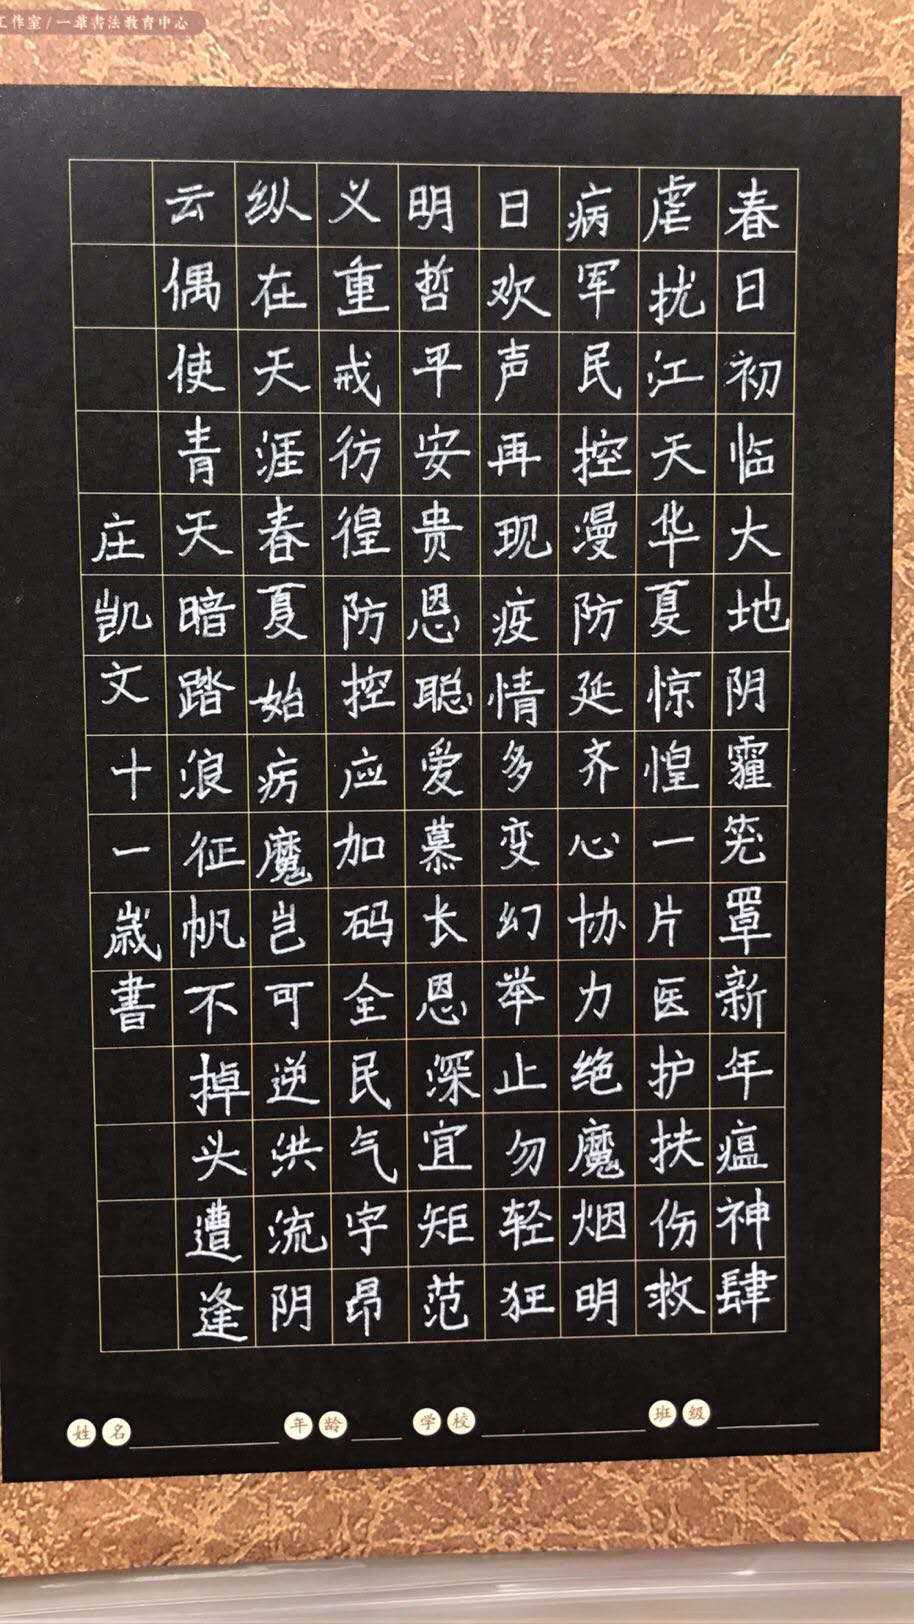 工作室/一華書法教育中心
春日初临大地阴霾笼罩新年瘟神肆
虐扰江天华夏惊惶一片医护扶伤救
病军民控漫防延齐心协力绝魔烟明
日欢声再现疫情多变幻举止勿轻狂
明哲平安贵恩聪爱慕长恩深宜矩范
义重戒彷徨防控应加码全民气宇昂
纵在天涯春夏始疠魔岂可逆洪流阴
云偶使青天暗踏浪征帆不掉头遭逢
庄凯文十一歲書
姓名 年龄 学校 班级